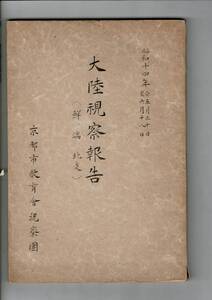 昭和十四年 自五月三十日
至六月十八日
大陸視察報告
(鮮満北支)
京都市教育會視察團